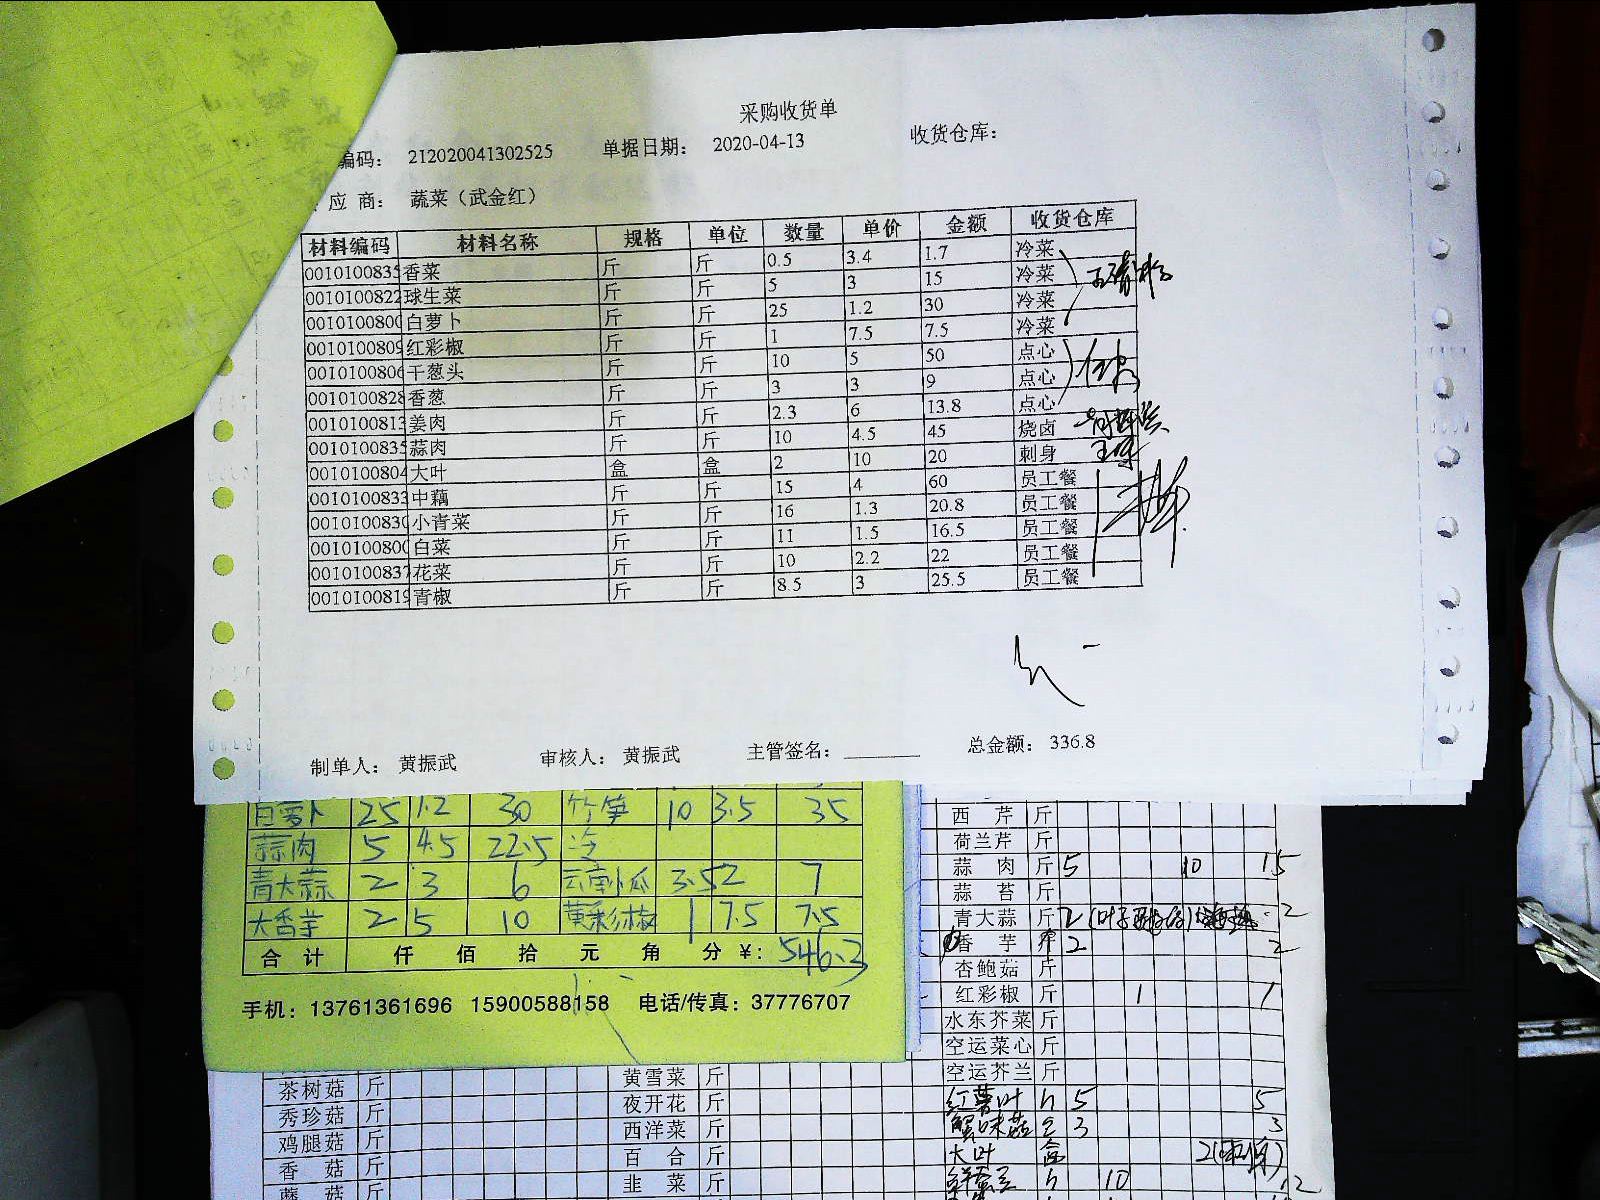 采购收货单
编码： 212020041302525 单据日期： 2020-04-13 收货仓库：
应 商： 蔬菜（武金红）
材料编码 材料名称 规格 单位 数量 单价 金额 收货仓库
0010100835 香菜 斤 斤 0.5 3.4 1.7 冷菜
0010100822 球生菜 斤 斤 5 3 15 冷菜
0010100800 白萝卜 斤 斤 25 1.2 30 冷菜
0010100809 红彩椒 斤 斤 1 7.5 7.5 冷菜
0010100806 干葱头 斤 斤 10 5 50 点心
0010100828 香葱 斤 斤 3 3 9 点心
0010100813 姜肉 斤 斤 2.3 6 13.8 点心
0010100835 蒜肉 斤 斤 10 4.5 45 烧卤
0010100804 大叶 盒 盒 2 10 20 刺身
0010100833 中藕 斤 斤 15 4 60 员工餐
0010100830 小青菜 斤 斤 16 1.3 20.8 员工餐
0010100800 白菜 斤 斤 11 1.5 16.5 员工餐
0010100837 花菜 斤 斤 10 2.2 22 员工餐
0010100819 青椒 斤 斤 8.5 3 25.5 员工餐
制单人： 黄振武 审核人： 黄振武 主管签名： 总金额： 336.8
白萝卜 25 1.2 30 竹笋 10 3.5 35
蒜肉 5 4.5 22.5 冷
青大蒜 2 3 6 云南小瓜 3.5 2 7
大香芋 2 5 10 黄彩椒 1 7.5 7.5
合 计 仟 佰 拾 元 角 分 ¥: 546.3
手机：13761361696 15900588158 电话/传真：37776707
西 芹 斤
荷兰芹 斤
蒜 肉 斤 5 10 15
蒜 苔 斤
青大蒜 斤 2 2
香 芋 斤 2 2
杏鲍菇 斤
红彩椒 斤 1 1
水东芥菜 斤
空运菜心 斤
空运芥兰 斤
红薯叶 斤 5 5
蟹味菇 3 3
大叶 盒 2
10 12
茶树菇 斤 黄雪菜 斤
秀珍菇 斤 夜开花 斤
鸡腿菇 斤 西洋菜 斤
香 菇 斤 百 合 斤
斤 韭 菜 斤